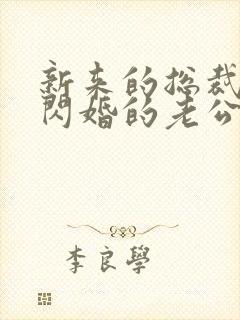 新来的总裁
闪婚的老公
李良學